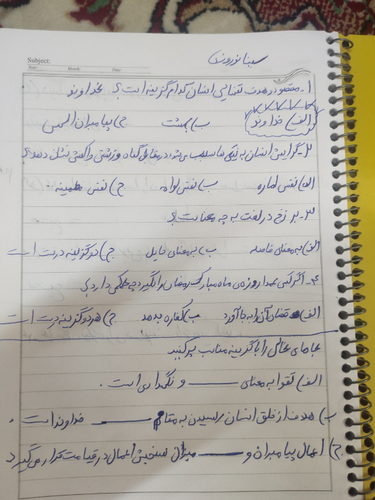 Subject:
Year Month Date
سینا نوروزی
۱- مقصود و هدف نهایی انسان کدام گزینه است؟ خداوند
الف) خداوند ب) بهشت ج) پیامبران الهی
۲- گرایش انسان به و در مقابل گناه و زشتی واکنش نشان دهد؟
الف) نفس اماره ب) نفس لوامه ج) نفس مطمئنه
۳- برزخ در لغت به چه معناست؟
الف) به معنای فاصله ب) به معنای حایل ج) دو گزینه درست است
۴- اگر کسی عمدا روزه ی ماه مبارک رمضان را نگیرد چه حکمی دارد؟
الف) قضای آن را به جا آورد ب) کفاره بدهد ج) هر دو گزینه درست است
جاهای خالی را با گزینه مناسب پر کنید
الف) تقوا به معنای ــــــ و نگهداری است.
ب) هدف از خلق انسان رسیدن به مقام ــــــ خداوند است.
ج) اعمال پیامبران و ــــــ میزان سنجش اعمال در قیامت قرار می گیرد